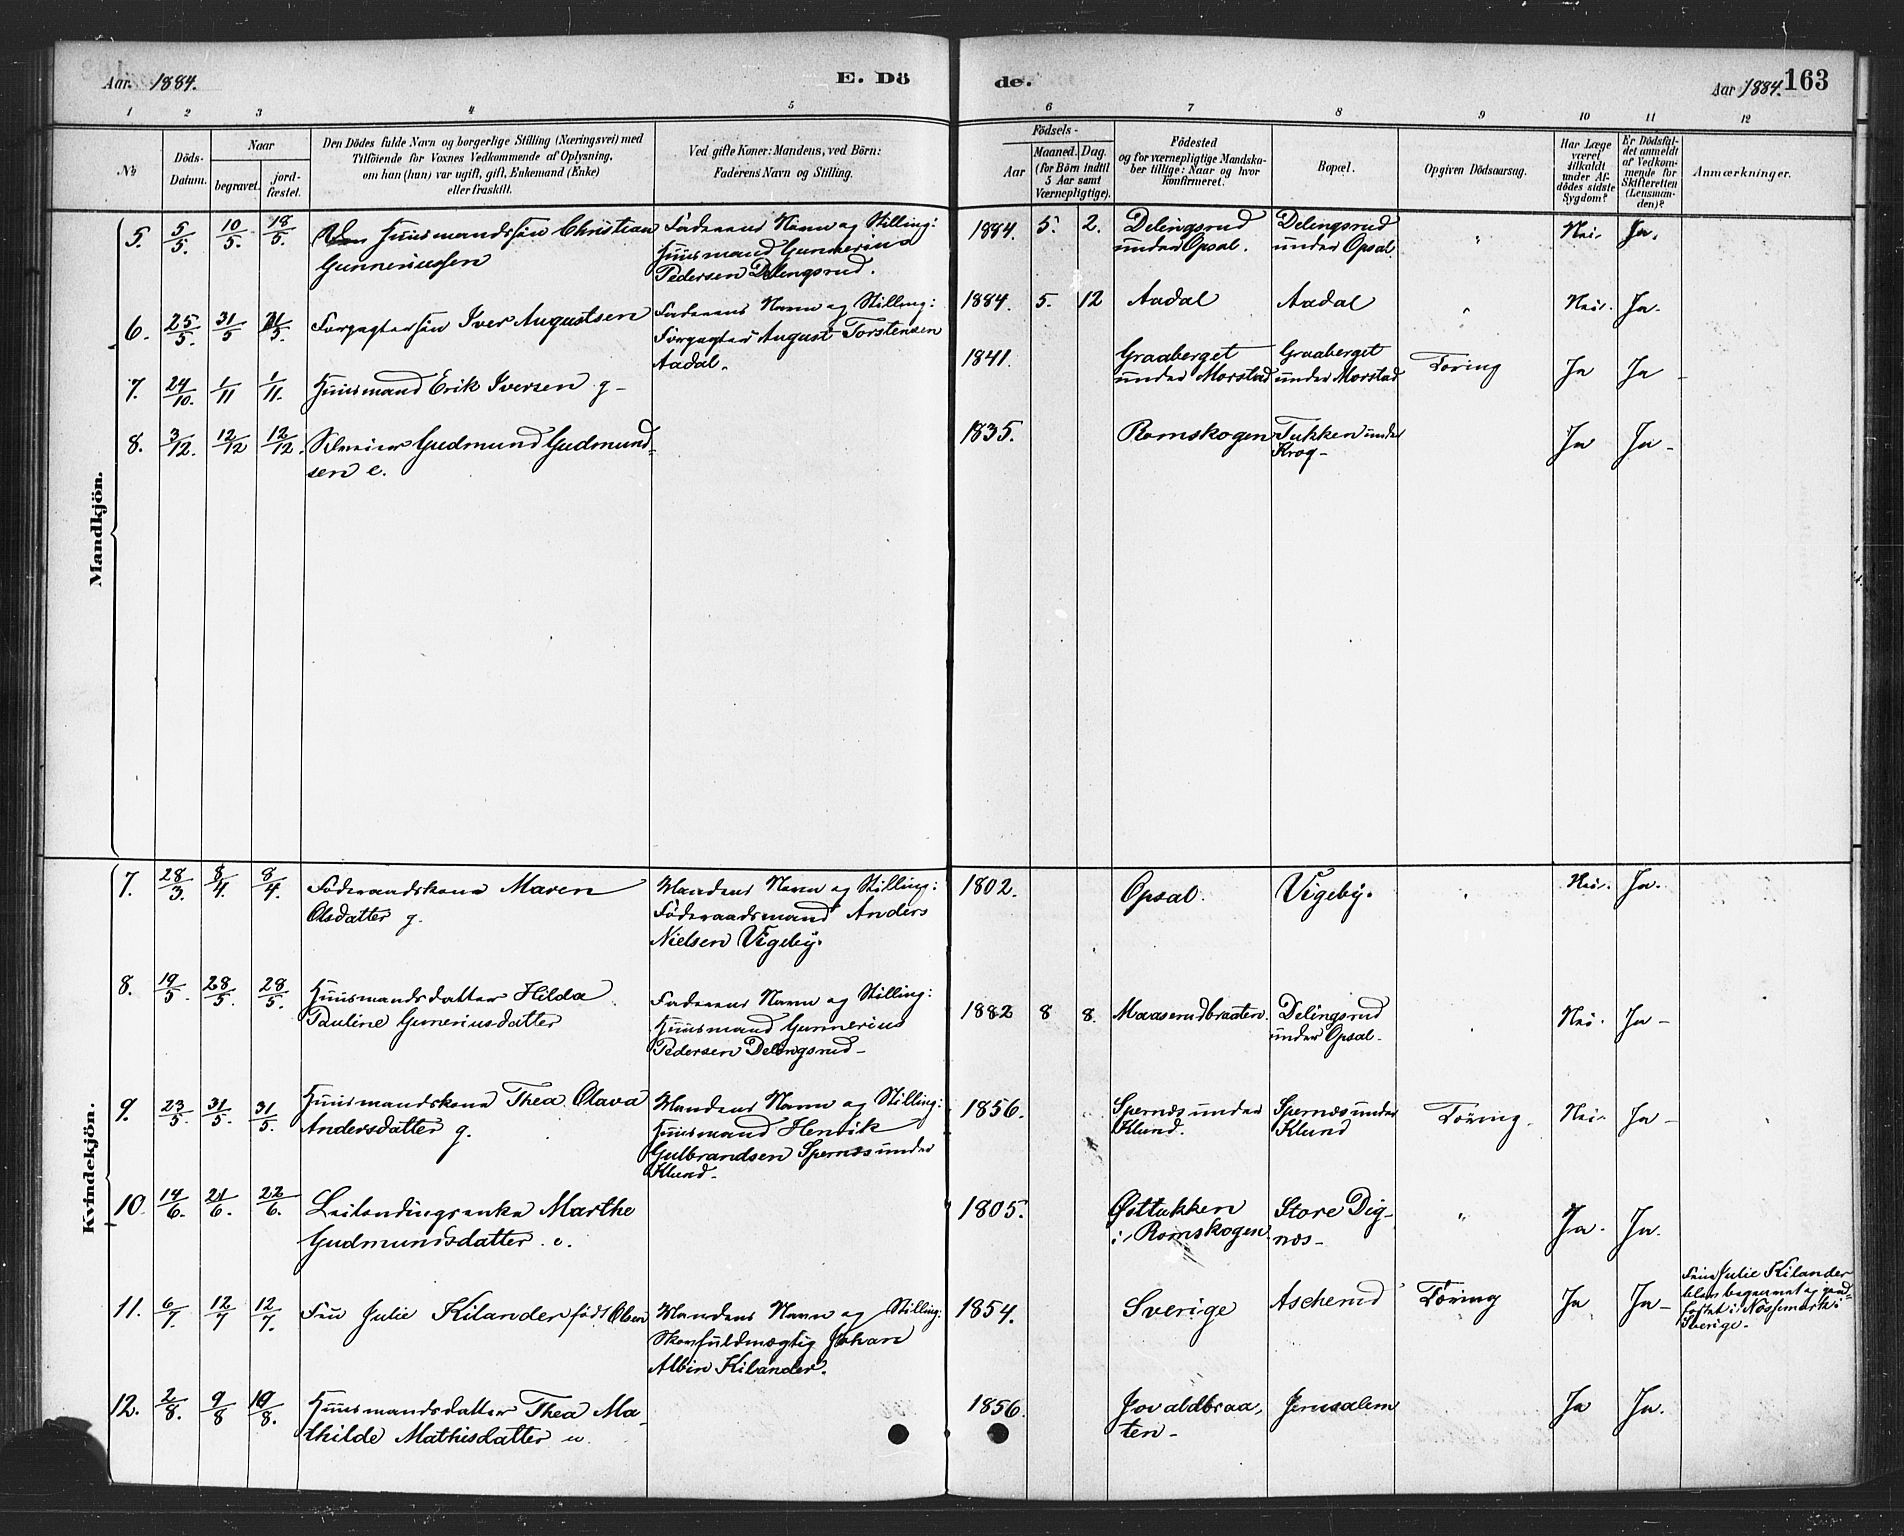 Aar. 1884. E. Dö
1 2 3 4 5
No
Döds-
Datum.
Naar
begravet.
jord-
fæstet.
Den Dödes fulde Navn og borgerlige Stilling (Næringsvei) med
Tilföiende for Voxnes Vedkommende af Oplysning,
om han (hun) var ugift, gift, Enkemand (Enke)
eller fraskilt.
Ved gifte Koner: Mandens, ved Börn:
Faderens Navn og Stilling.
de. Aar 1884. 163
6 7 8 9 10 11 12
Födsels-
Aar
Maaned. Dag.
(for Börn indtil
5 Aar samt
Værnepligtige).
Födested
og for værnepligtige Mandska-
ber tillige: Naar og hvor
konfirmeret.
Bopæl.
Opgiven Dödsaarsag.
Har Læge
været
tilkaldt
under Af-
dödes sidste
Sygdom?
Er Dödsfal-
det anmeldt
af Vedkom-
mende for
Skifteretten
(Lensman-
den)?
Anmærkninger.
Mandkjön.
5. 5/5. 10/5. 18/5. Huusmandssön Christian
Gunneriussen
Faderens Navn og Stilling:
Huusmand Gunnerius
Pedersen Delingsrud.
1884. 5. 2. Delingsrud
under Opsal.
Delingsrud
under Opsal.
" Nei. Ja.
6. 25/5. 31/5 31/5. Forpagtersön Iver Augustsen
Faderens Navn og Stilling:
Forpagter August Torstensen
Aadal.
1884. 5. 12 Aadal Aadal " Nei. Ja.
7. 24/10. 1/11 1/11. Huusmand Erik Iversen g-
1841. Graaberget
under Morstad
Graaberget
under Morstad
Tæring Ja Ja -
8. 3/12. 12/12 12/12. Gudmund Gudmund-
sen e.
1835. Romskogen Tukken under
Krog-
Ja Ja -
Kvindekjön.
7. 28/3. 8/4 8/4. Föderaadskone Maren
Olsdatter g.
Mandens Navn og Stilling:
Föderaadsmand Anders
Nielsen Vigeby.
1802. Opsal. Vigeby. " Nei. Ja.
8. 19/5. 28/5. 28/5. Huusmandsdatter Hilda
Pauline Guneriusdatter
Faderens Navn og Stilling:
Huusmand Gunnerius
Pedersen Delingsrud-
1882 8 8. Maaserudbraaten. Delingsrud
under Opsal.
Nei. Ja -
9. 23/5. 31/5. 31/5. Huusmandskone Thea Olava
Andersdatter g.
Mandens Navn og Stilling:
Huusmand Henrik
Gulbrandsen Spernæs under
Klund.
1856. Spernæs under
Klund.
Spernæs under
Klund
Tæring. Nei. Ja -
10. 14/6. 21/6. 22/6. Leilændingsenke Marthe
Gudmundsdatter. e.
1805. Østtukken
i Romskogen.
Store Dig-
næs-
" Ja. Ja.
11. 6/7. 12/7 12/7. Fru Julie Kilander född Olsen
Mandens Navn og Stilling:
Skovfuldmægtig Johan
Albin Kilander.
1854. Sverige Ascherud Tæring Ja Ja -
Fru Julie Kilander
blev begravet og jord-
fæstet i Nössemark i
Sverige.
12. 2/8. 9/8 10/8. Huusmandsdatter Thea Ma-
thilde Mathisdatter u.
1856. Jovaldbraa-
ten-
Jerusalem
Ja Ja.